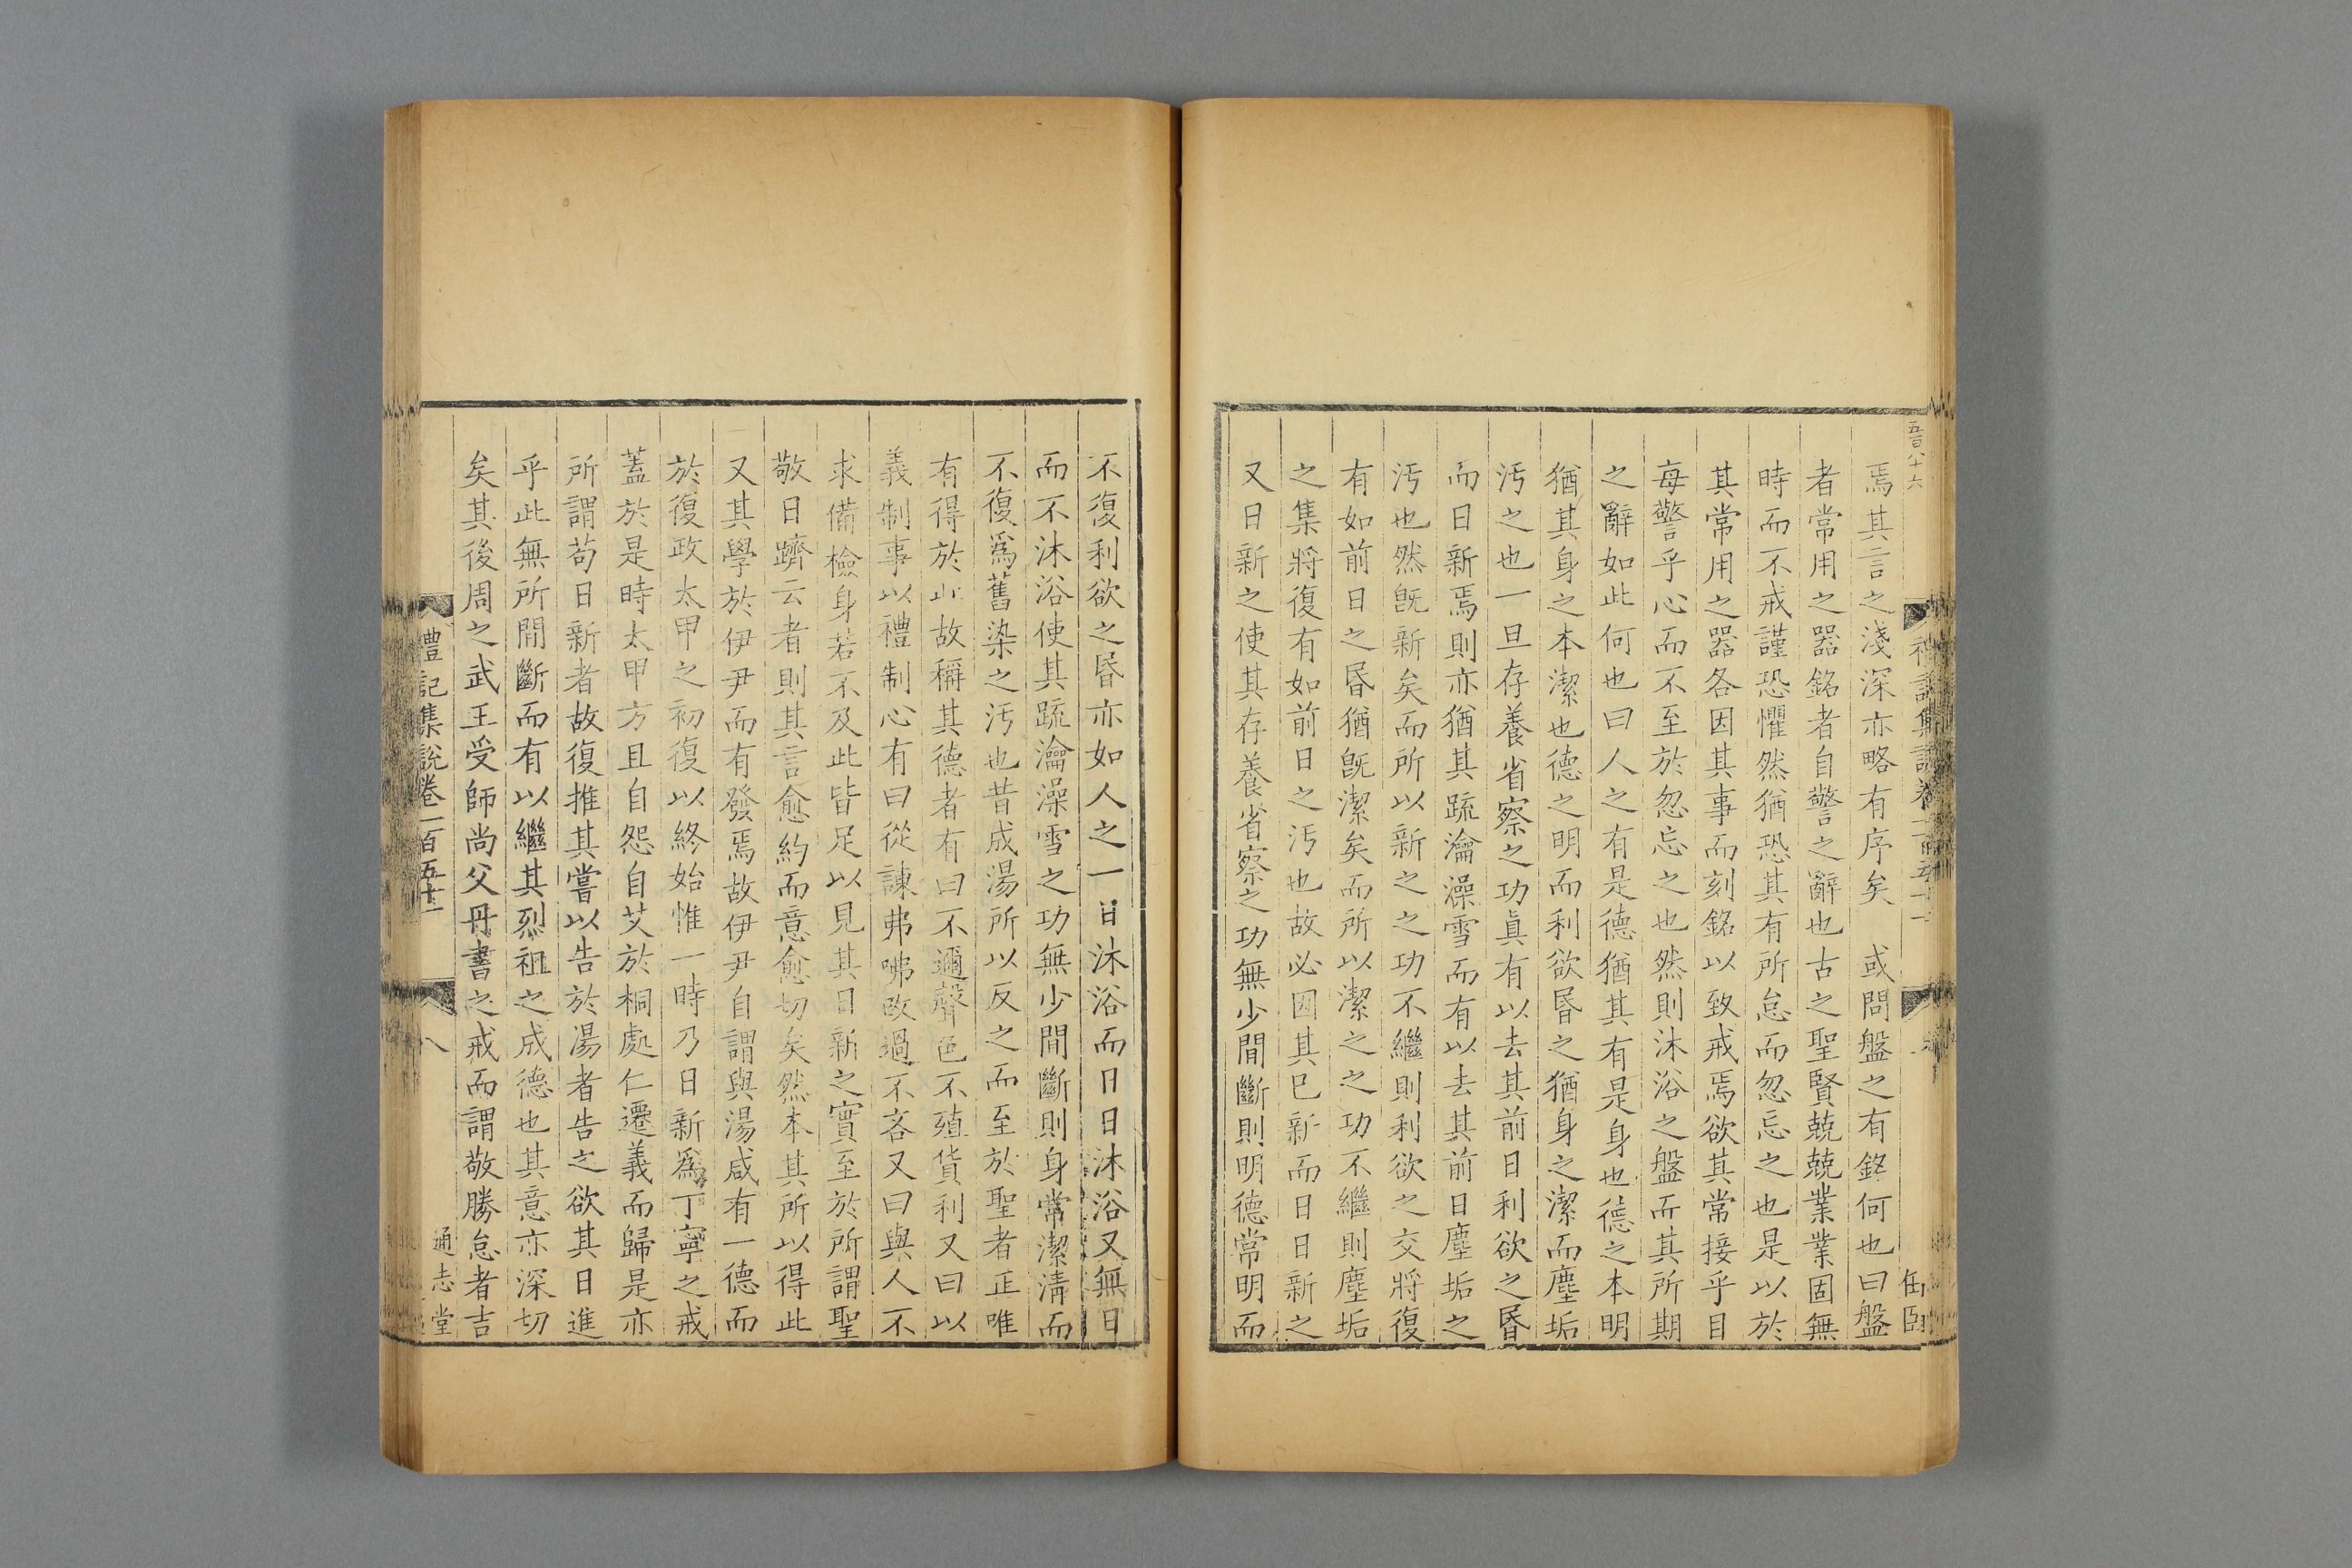 五百八十六
焉其言之淺深亦略有序矣　或問盤之有銘何也曰盤
者常用之器銘者自警之辭也古之聖賢兢兢業業固無
時而不戒謹恐懼然猶恐其有所怠而忽忘之也是以於
其常用之器各因其事而刻銘以致戒焉欲其常接乎目
每警乎心而不至於忽忘之也然則沐浴之盤而其所期
之辭如此何也曰人之有是德猶其有是身也德之本明
猶其身之本潔也德之明而利欲昬之猶身之潔而塵垢
汚之也一旦存養省察之功眞有以去其前日利欲之昬
而日新焉則亦猶其疏瀹澡雪而有以去其前日塵垢之
汚也然旣新矣而所以新之之功不繼則利欲之交將復
有如前日之昬猶旣潔矣而所以潔之之功不繼則塵垢
之集將復有如前日之汚也故必因其已新而日日新之
又日新之使其存養省察之功無少閒斷則明德常明而
不復利欲之昬亦如人之一日沐浴而日日沐浴又無日
而不沐浴使其疏瀹澡雪之功無少間斷則身常潔淸而
不復爲舊染之汚也昔成湯所以反之而至於聖者正唯
有得於此故稱其德者有曰不邇聲色不殖貨利又曰以
義制事以禮制心有曰從諫弗咈改過不吝又曰與人不
求備檢身若不及此皆足以見其日新之實至於所謂聖
敬日躋云者則其言愈約而意愈切矣然本其所以得此
又其學於伊尹而有發焉故伊尹自謂與湯咸有一德而
於復政太甲之初復以終始惟一時乃日新爲丁寧之戒
蓋於是時太甲方且自怨自艾於桐處仁遷義而歸是亦
所謂苟日新者故復推其嘗以告於湯者告之欲其日進
乎此無所閒斷而有以繼其烈祖之成德也其意亦深切
矣其後周之武王受師尚父丹書之戒而謂敬勝怠者吉
禮記集說卷一百五十一　八　通志堂